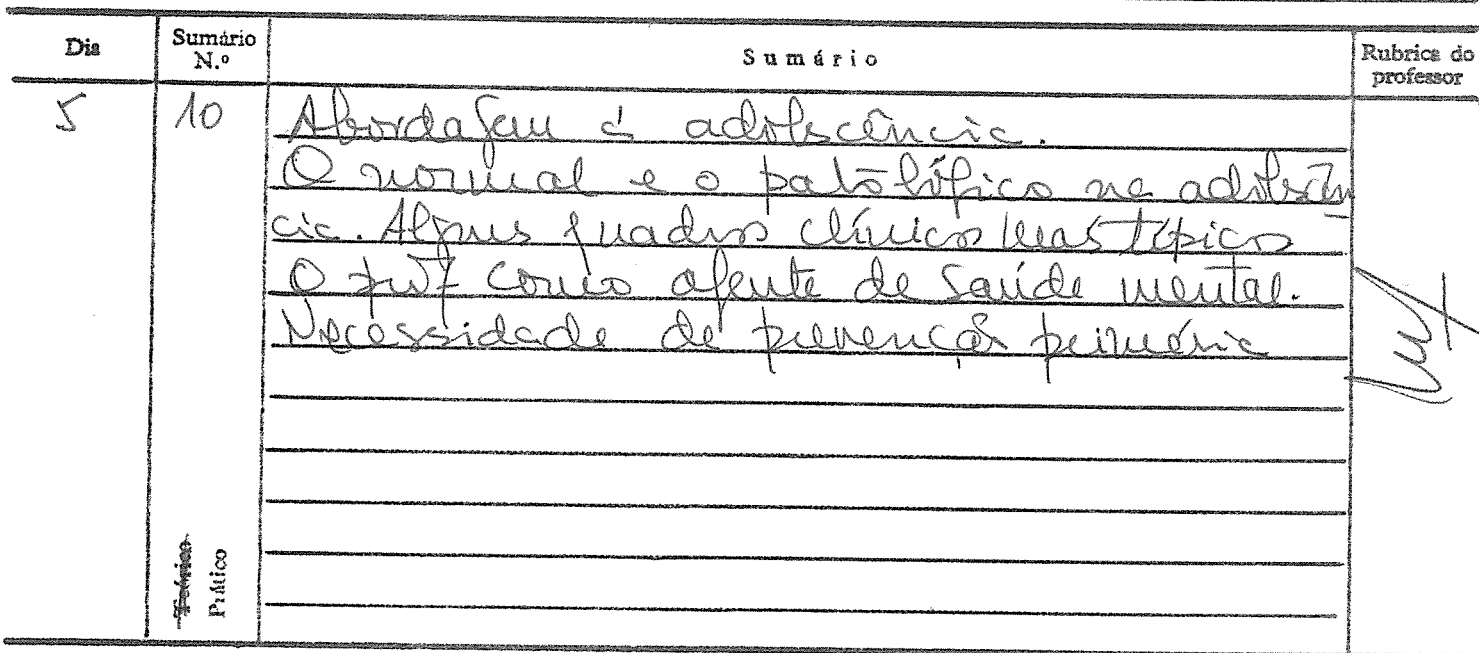 Dia Sumário N.º Sumário Rubrica do professor
5 10 Abordagem à adolescência.
O normal e o patológico na adolescên
cia. Alguns quadros clínicos mais típicos
O prof como agente de saúde mental.
Necessidade de prevenção primária
Teórico
Prático